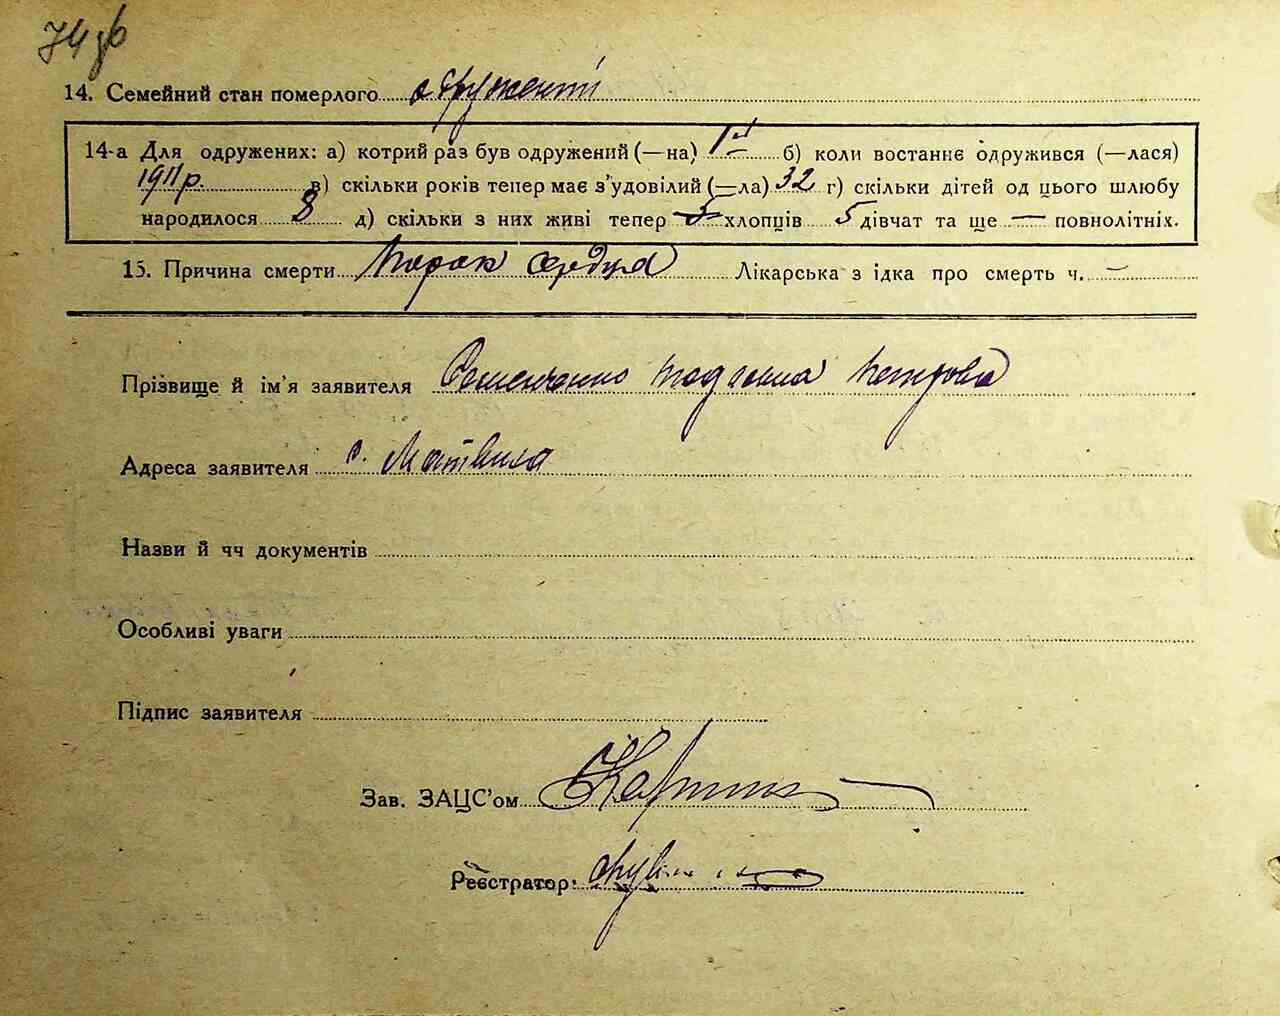 74 зв
14. Семейний стан померлого одружений
14-а Для одружених: а) котрий раз був одружений (—на) 1-й б) коли востаннє одружився (—лася)
1911 р. в) скільки років тепер має з'удовілий (—ла) 32 г) скільки дітей од цього шлюбу
народилося 8 д) скільки з них живі тепер хлопців 5 дівчат та ще — повнолітніх.
15. Причина смерти Порок сердца Лікарська з ідка про смерть ч. —
Прізвище й ім'я заявителя Петрова
Адреса заявителя с.
Назви й чч документів
Особливі уваги
Підпис заявителя
Зав. ЗАЦС'ом
Реєстратор: